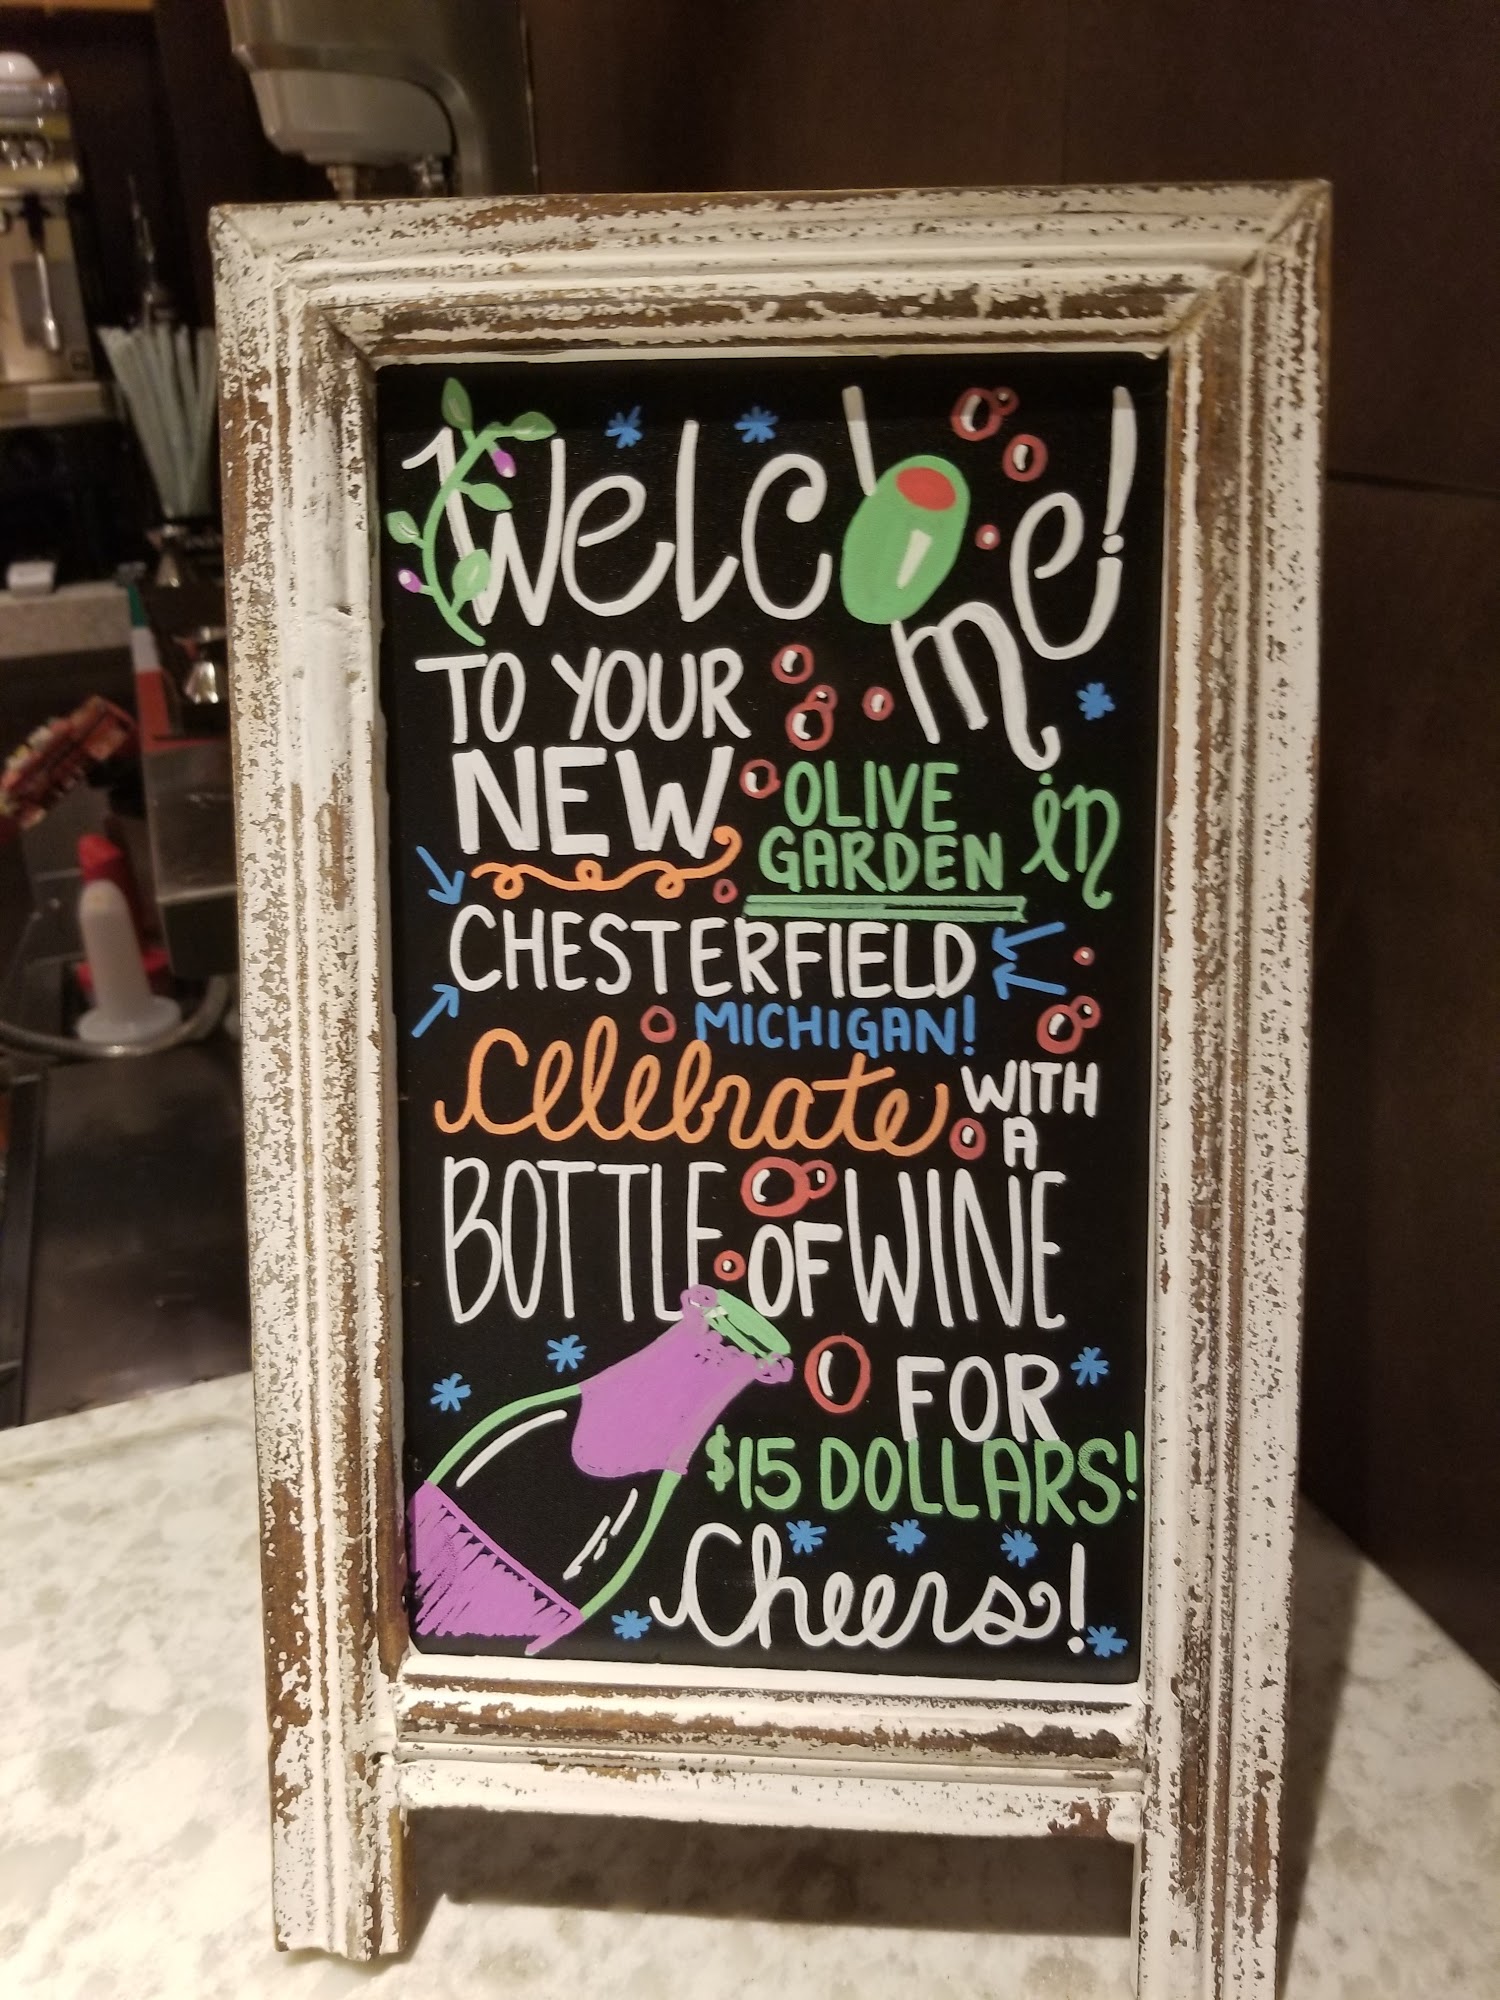 Welcome!
TO YOUR
NEW OLIVE GARDEN in
CHESTERFIELD
MICHIGAN!
Celebrate WITH A
BOTTLE OF WINE
FOR
$15 DOLLARS!
Cheers!